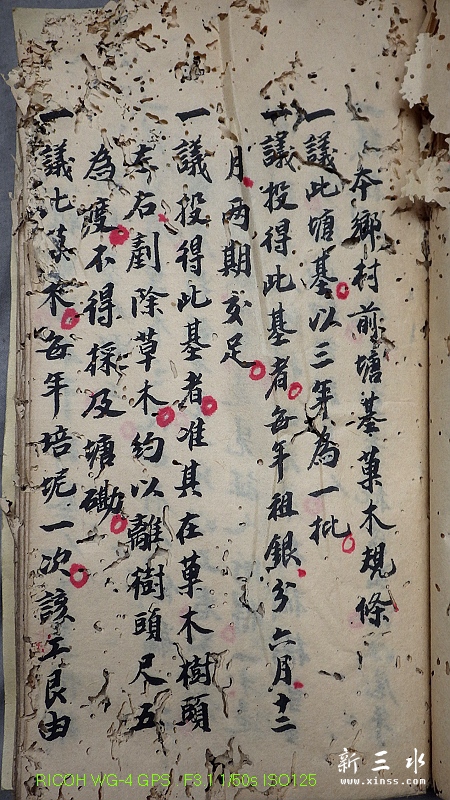 本鄉村前塘基菓木規條
一議此塘基以三年為一批
一議投得此基者每年租銀分六月十二
月兩期交足
一議投得此基者准其在菓木樹頭
左右剷除草木約以離樹頭尺五
為度不得採及塘磡
一議七菓木每年培坭一次該工艮由
RICOH WG-4 GPS F3.1 1/50s ISO125
新三水
www.xinss.com